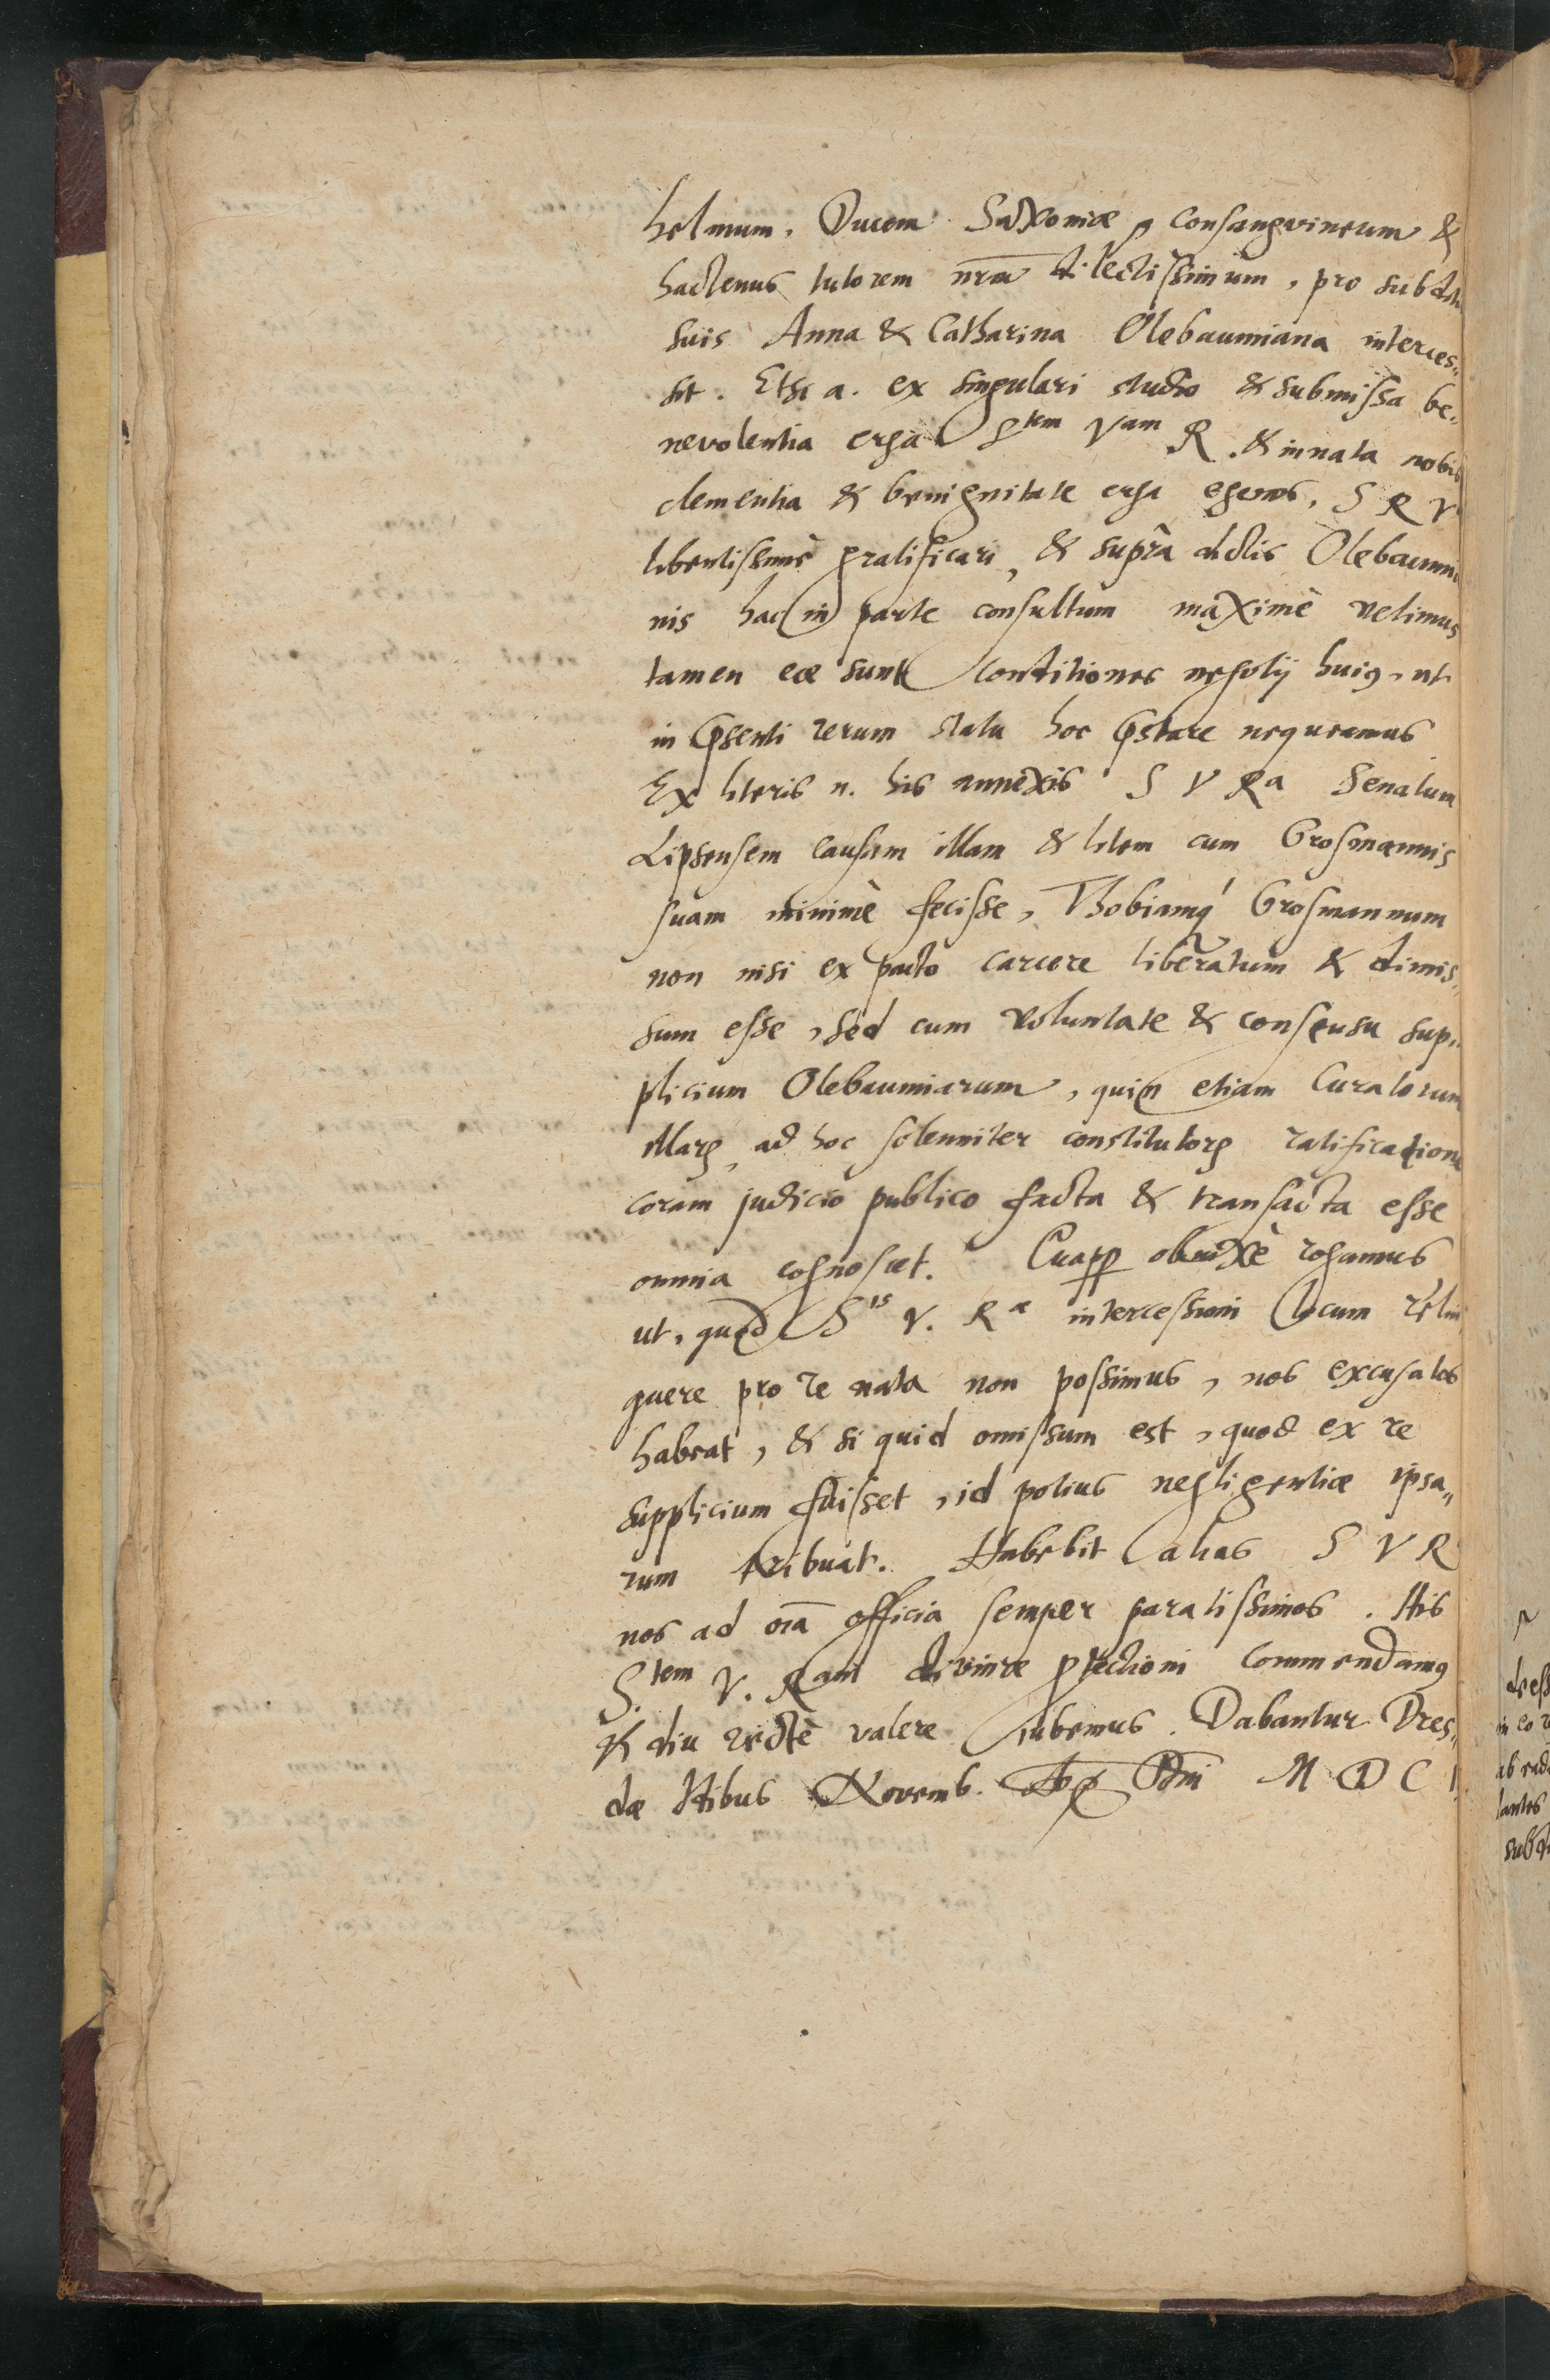 helmum, Ducem Saxoniæ, consangvineum &
hactenus tutorem nrm dilectissimum, pro subditis
suis Anna & Catharina Olebaumiana interces„
sit. Etsi a. ex singulari studio & submissa be„
nevolentia erga Stem Vam R. & innata nobis
clementia & benignitate erga egenos, S R V
libentissimè gratificari, & suprà dictis Olebaumia
nis hac in parte consultum maximè velimus
tamen eæ sunt conditiones negotij huiꝰ, ut
in pͤsenti rerum statu hoc pͤstare nequeamus
Ex literis n. his annexis S V Ra Senatum
Lipsensem causam illam & litem cum Grosmannis
suam minimè fecisse, Thobiamq́ Grosmannum
non nisi ex pacto carcere liberatum & dimis„
sum esse, sed cum voluntate & consensu sup„
plicium Olebaumiarum, quin etiam Curatorum
illarꝫ, ad hoc solenniter constitutorꝫ ratificatione
coram judicio publico facta & transacta esse
omnia cognoscet. Quapp obnixè rogamus
ut, quod Sis V. Ræ intercessioni locum relin
quere pro re nata non possimus, nos excusatos
habeat, & si quid omissum est, quod ex re
supplicium fuisset, id potius negligentiæ ipsa„
rum tribuat. Habebit alias S V R
nos ad oīa officia semper paratissimos. His
S.tem V. Ram divinæ ptectioni commendamꝰ
& diu rectè valere jubemus. Dabantur Dres„
dæ Idibus Novemb. Ao Dni M D C I